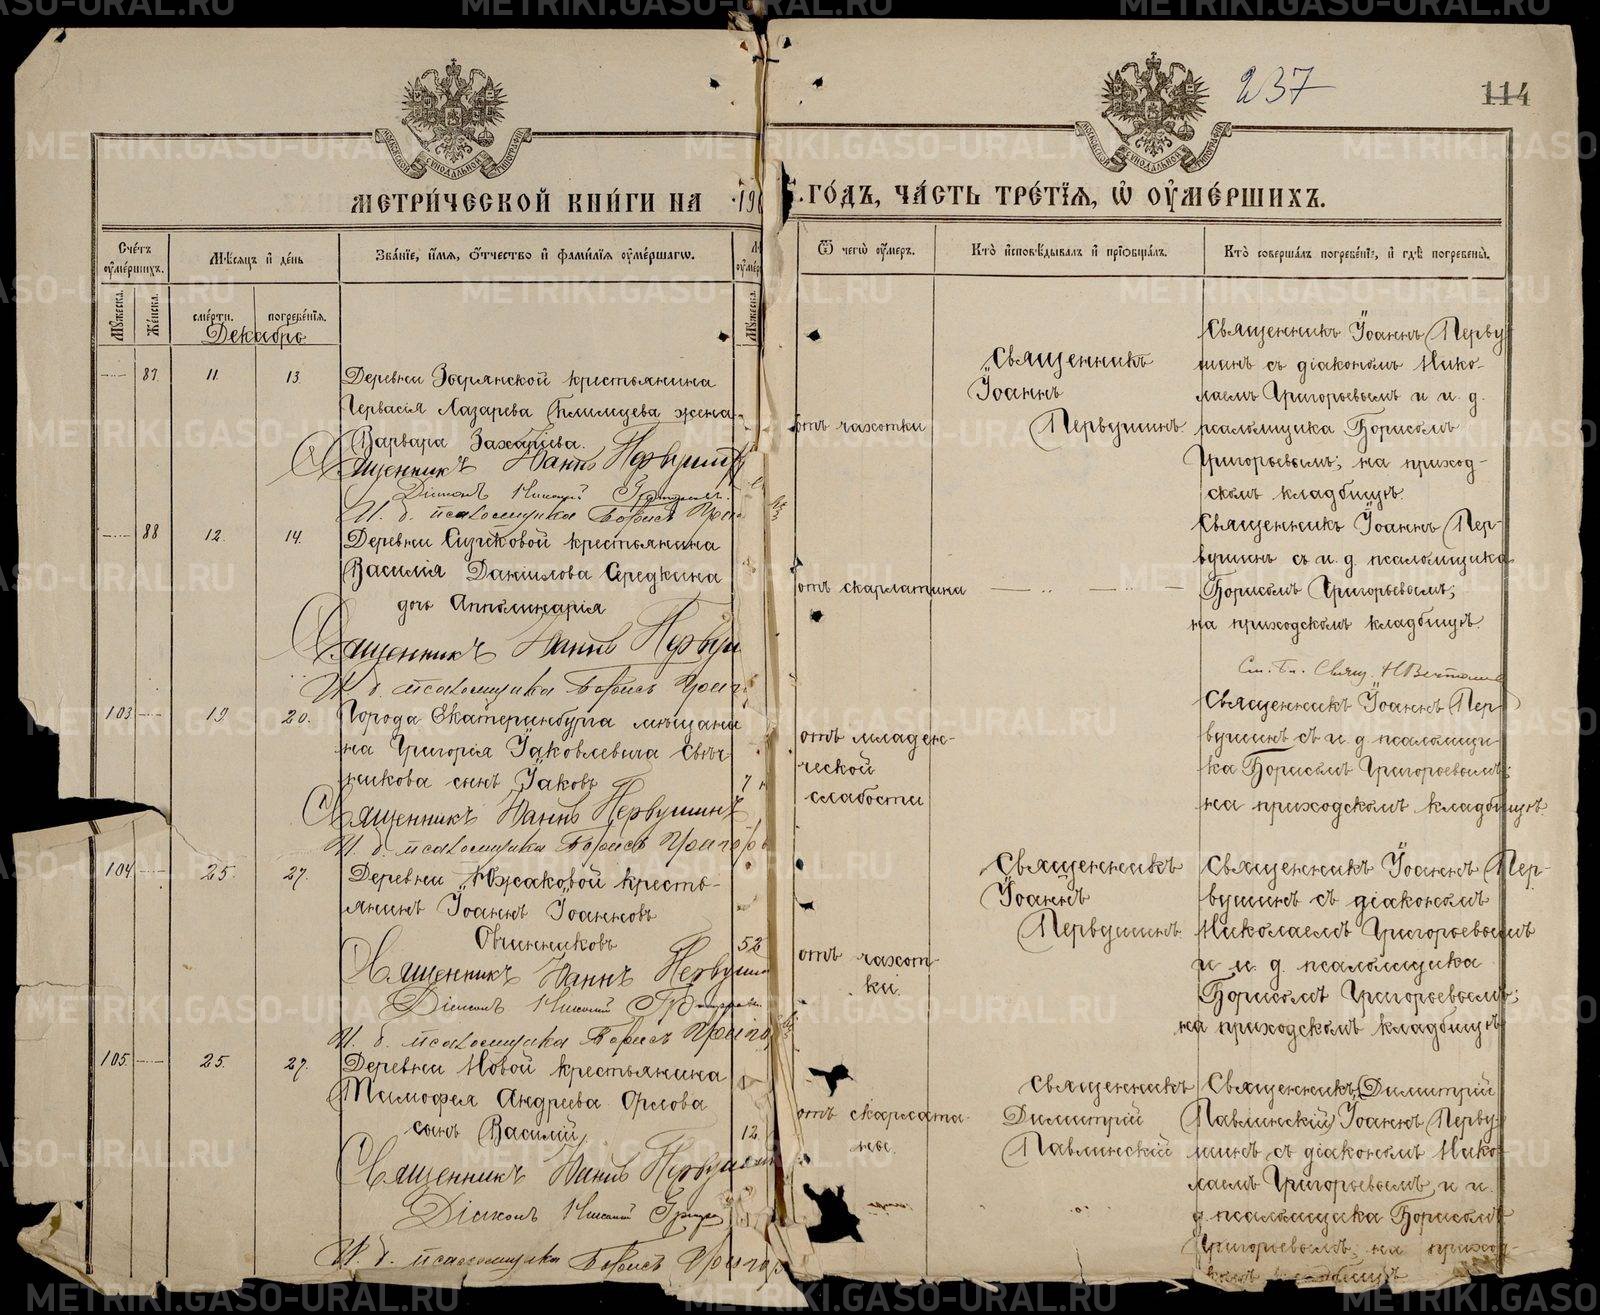 237
114
МОСКОВСКОЙ СѴНОДАЛЬНОЙ ТИПОГРАФІИ
МОСКОВСКОЙ СѴНОДАЛЬНОЙ ТИПОГРАФІИ
МЕТРИ́ЧЕСКОЙ КНИ́ГИ НА 190
ГО́ДЪ, ЧА́СТЬ ТРЕ́ТЇѦ, Ѡ҆ ОУ҆МЕ́РШИХЪ.
Сче́тъ оу҆ме́ршихъ.
Мѣ́сѧцъ и҆ де́нь
Зва́нїе, и҆́мѧ, ѻ҆́тчество и҆ фами́лїѧ оу҆ме́ршагѡ.
Ѿ чегѡ̀ оу҆́меръ.
Кто̀ и҆сповѣ́дывалъ и҆ прїѡбща́лъ.
Кто̀ соверша́лъ погребе́нїе, и҆ гдѣ̀ погребены̀.
Мꙋ́жеска.
Же́нска.
сме́рти.
погребе́нїѧ.
Мꙋ́жеска.
Декабрь
87. 11. 13.
Деревни Зырянской крестьянина
Гервасія Лазарева жена
Варвара Захаріева.
Священникъ Іоаннъ Первушин
Діаконъ Николай
И. д. псаломщика Борисъ Григ
отъ чахотки
Священникъ
Іоаннъ
Первушинъ
Священникъ Іоаннъ Перву
шинъ съ діакономъ Нико-
лаемъ Григорьевымъ и и. д.
псаломщика Борисомъ
Григорьевымъ; на приход-
скомъ кладбищѣ.
88 12. 14.
Деревни крестьянина
Василія Даніилова Середкина
дочь Апполинарія
Священникъ Іоаннъ Первуш
И. д. псаломщика Борисъ Григ
отъ скарлатина
Священникъ Іоаннъ Пер-
вушинъ съ и. д. псаломщика
Борисомъ Григорьевымъ;
на приходскомъ кладбищѣ.
103 19 20.
Города Екатеринбурга мѣщани
на Григорія Іаковлевича Свѣч-
никова сынъ Іаковъ
7 н
Священникъ Іоаннъ Первушинъ
И. д. псаломщика Борисъ Григорь
отъ младен-
ческой
слабости
Священникъ Іоаннъ Пер-
вушинъ съ и. д. псаломщи-
ка Борисомъ Григорьевымъ;
на приходскомъ кладбищѣ.
104 25. 27.
Деревни Южаковой кресть-
янинъ Іоаннъ Іоанновъ
Овчинниковъ
52
Священникъ Іоаннъ Первушин
Діаконъ Николай
И. д. псаломщика Борисъ Григор
отъ чахот-
ки.
Священникъ
Іоаннъ
Первушинъ
Священникъ Іоаннъ Пер-
вушинъ съ діакономъ
Николаемъ Григорьевымъ
и и. д. псаломщика
Борисомъ Григорьевымъ;
на приходскомъ кладбищѣ
105 25. 27.
Деревни Новой крестьянина
Тимофея Андреева Орлова
сынъ Василій
12
Священникъ Іоаннъ Первушин
Діаконъ Николай Григор
И. д. псаломщика Борисъ Григор
отъ скарлати-
ны.
Священникъ
Димитрій
Павлинскій
Священникъ Димитрій
Павлинскій Іоаннъ Перву-
шинъ съ діакономъ Нико-
лаемъ Григорьевымъ и и.
д. псаломщика Борисомъ
Григорьевымъ; на приход-
скомъ кладбищѣ
METRIKI.GASO-URAL.RU